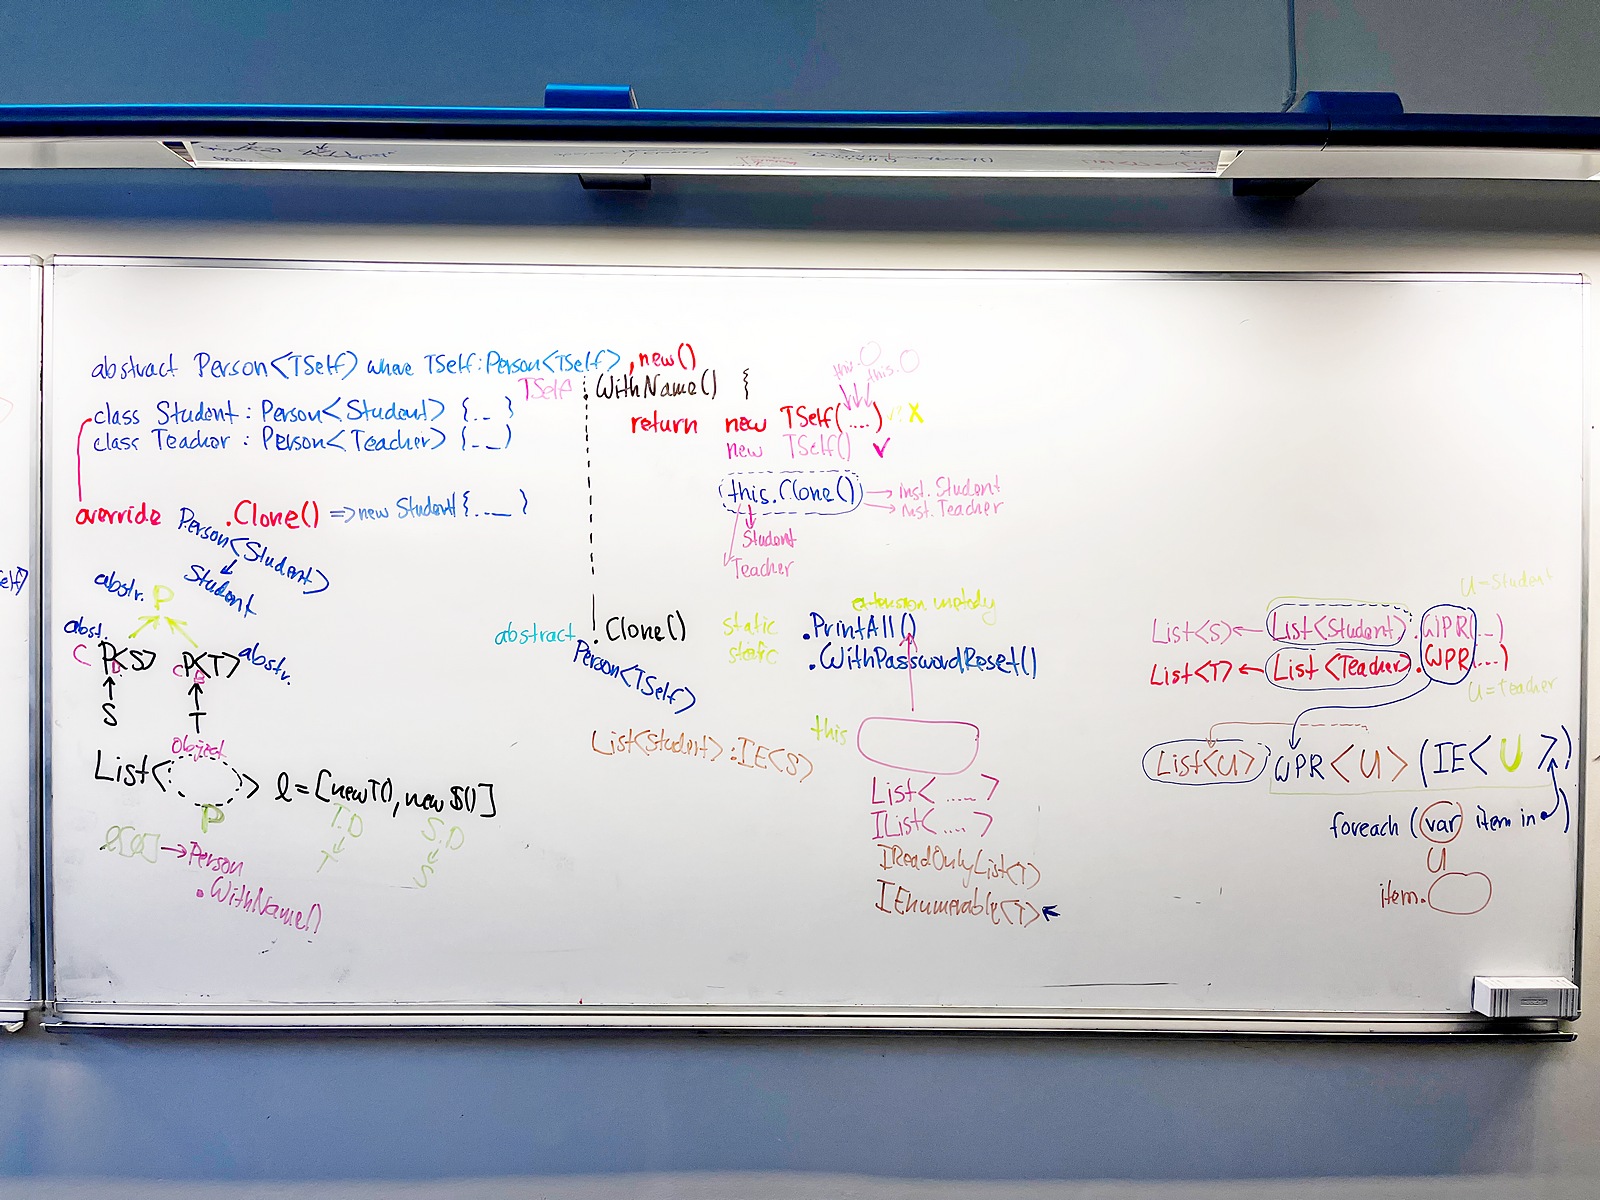 abstract Person<TSelf> where TSelf : Person<TSelf>, new()
TSelf .WithName() {
this.
this.
return new TSelf(....)
new TSelf() ✓
class Student : Person<Student> {...}
class Teacher : Person<Teacher> {...}
this.Clone() → inst. Student
→ inst. Teacher
Student
Teacher
override Person<Student> .Clone() => new Student {...}
Student
abstract .Clone()
Person<TSelf>
abstr. P
abst. P<S>
P<T> abstr.
S
T
object
List< > l = [new T(), new S()]
P
T.D
T
S.D
S
l[0] → Person
.WithName()
extension metody
static .PrintAll()
static .WithPasswordReset()
this
List<Student> : IE<S>
List< ..... >
IList< .... >
IReadOnlyList<T>
IEnumerable<T> ←
U = Student
List<S> ← List<Student>.WPR(...)
List<T> ← List<Teacher>.WPR(....)
U = Teacher
List<U> WPR<U>(IE<U>)
foreach (var item in )
U
item.
elf>